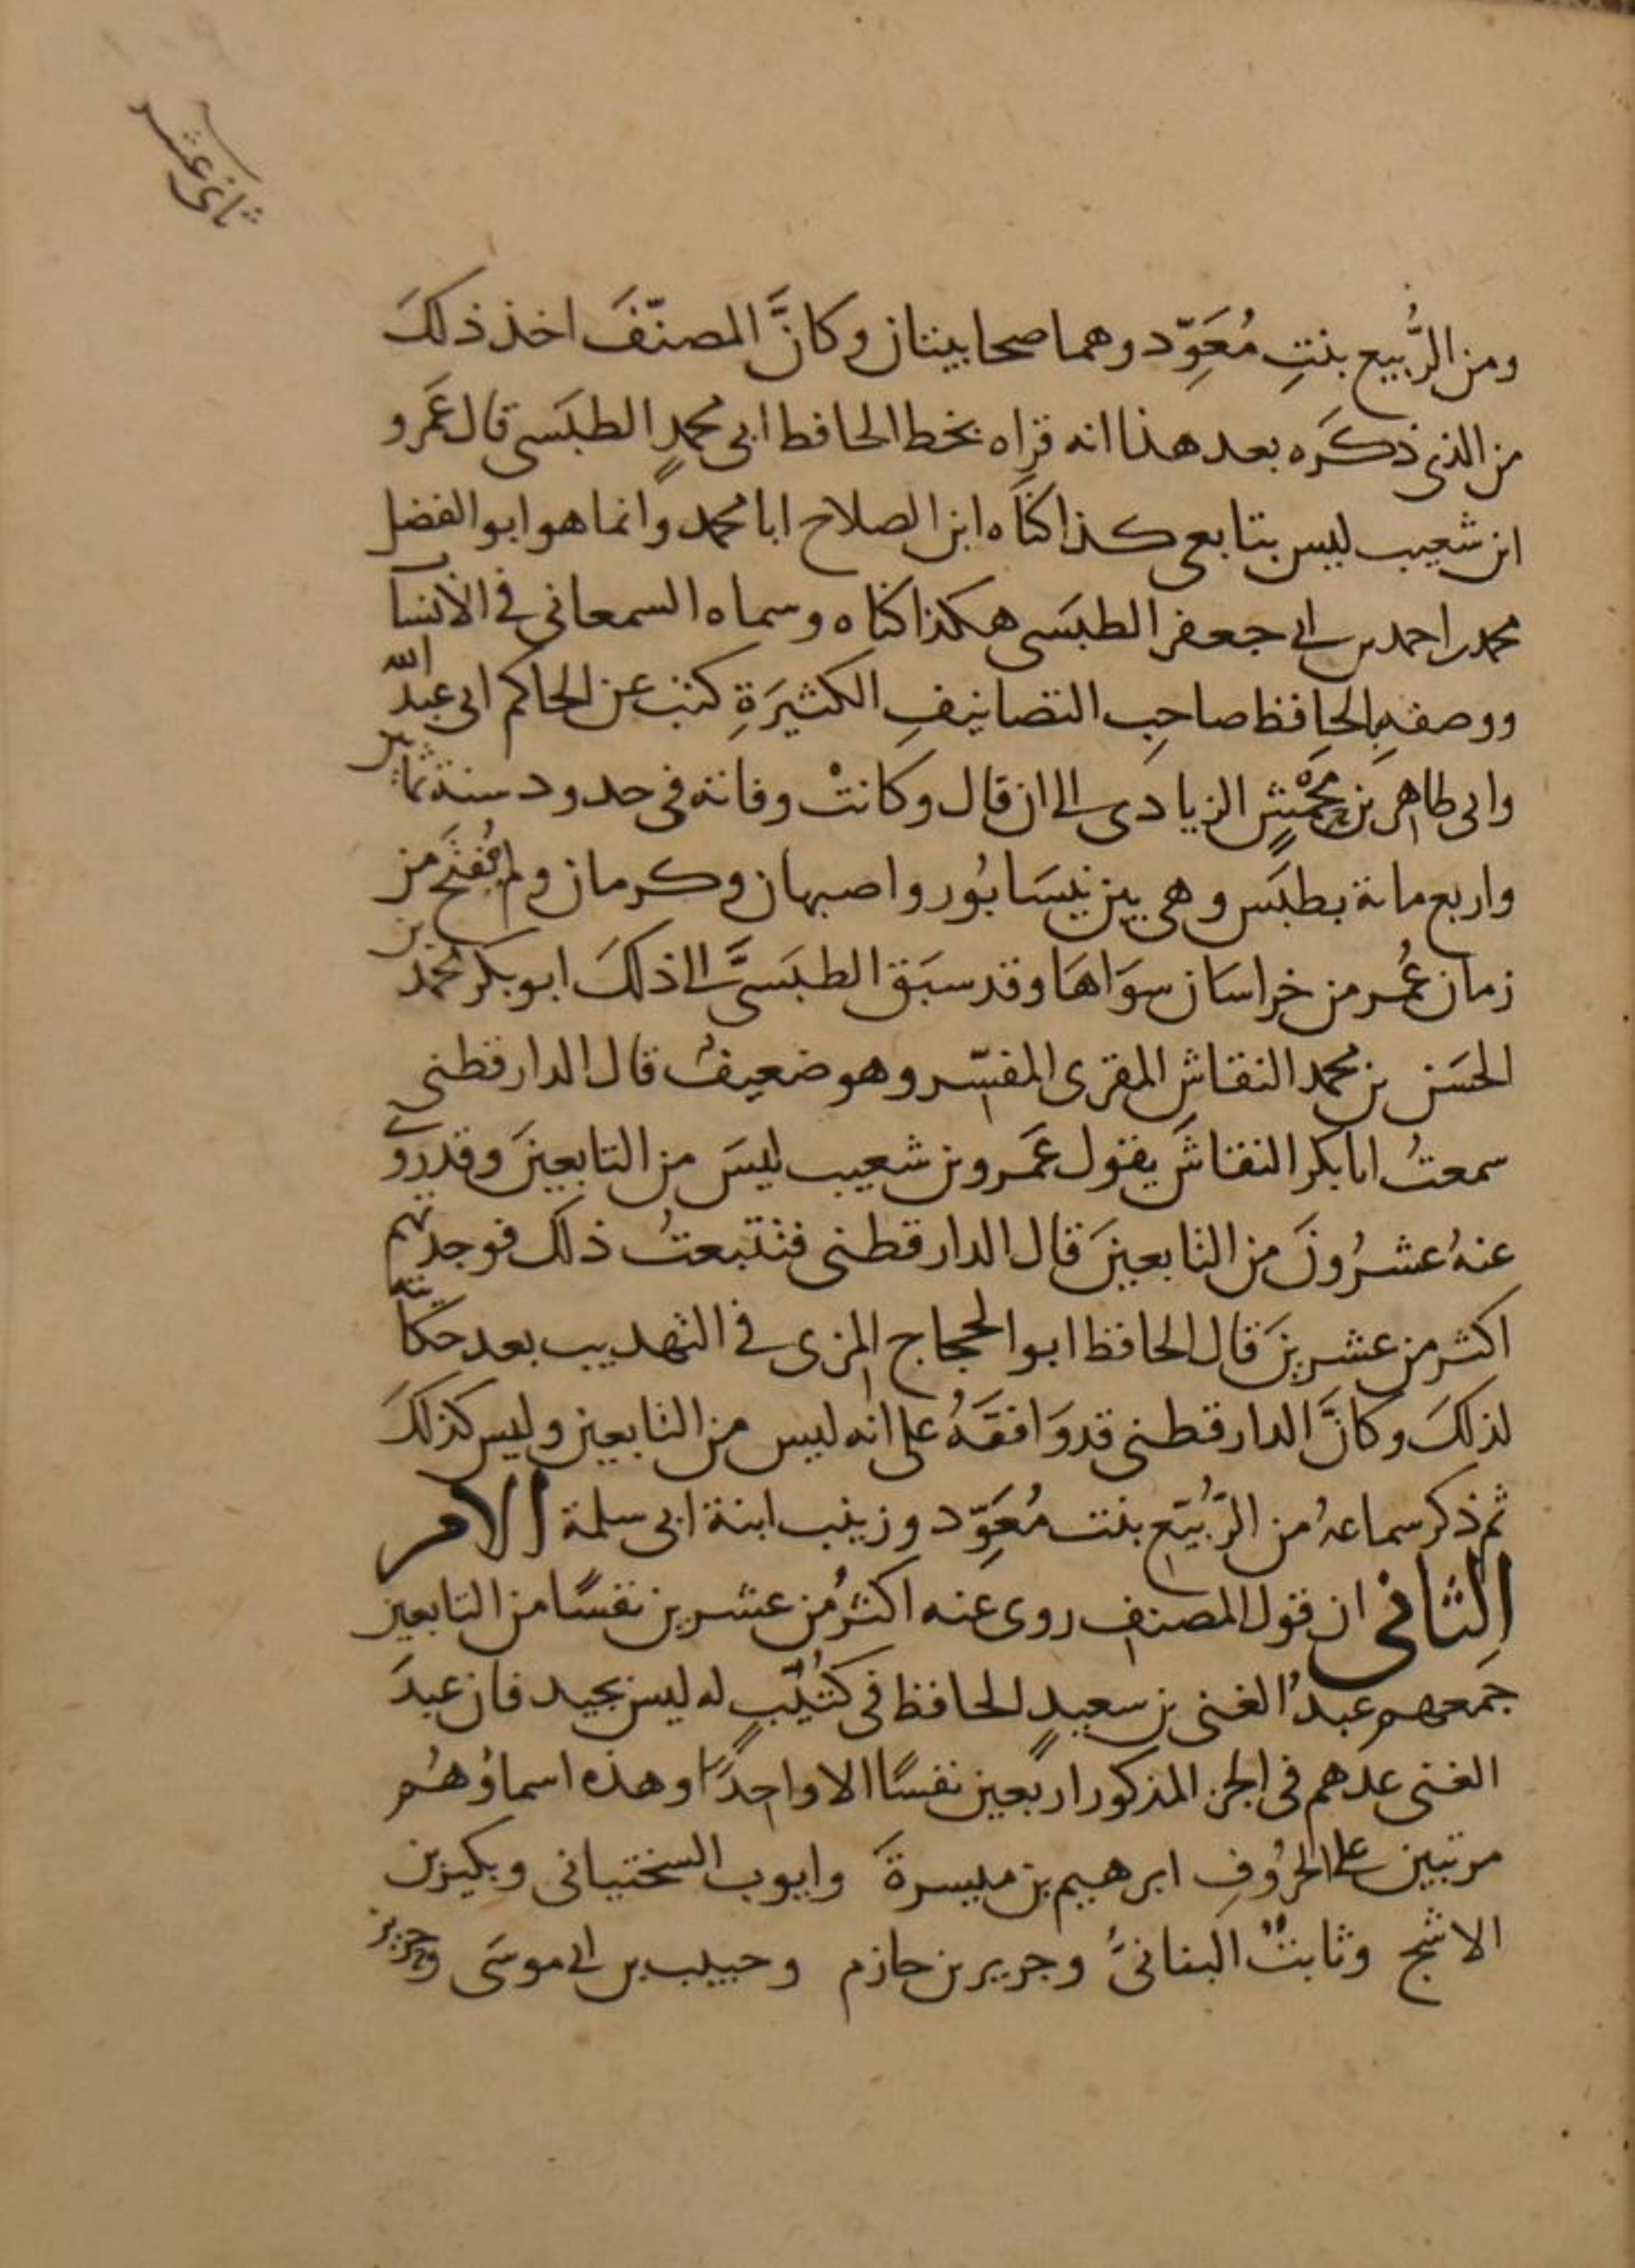 ثاني عشر
ومن الرُّبيع بنتِ مُعَوِّد وهما صحابيتان وكانَّ المصنّفَ اخذ ذلكَ
من الذي ذكَره بعد هذا انه قراه بخط الحافظ ابي محمدٍ الطبَسي قال عَمرو
ابن شعيب ليس بتابعي كذا كنَّاه ابن الصلاح ابا محمد وانما هو ابو الفضل
محمد بن احمد بن ابي جعفر الطبَسي هكذا كناه وسماه السمعاني في الأنساب
ووصفه بالحافظ صاحبِ التصانيفِ الكثيَرةِ كتب عن الحاكم ابي عبد الله
وابي طاهر بن مَحْمِشٍ الزيادي الى ان قال وكانتْ وفاته في حدود سنة ثمانين
واربع مائة بطبَس وهي بين نيسَابُور واصبهان وكرمان ولم يُفتَح من
زمان عُمر من خراسَان سوَاهَا وقد سبَق الطبَسيَّ الى ذلكَ ابو بكر محمد بن
الحسَن بن محمد النقاش المقرى المفسّر وهو ضعيفٌ قال الدارقطني
سمعتُ ابا بكر النقاشَ يقول عَمرو بن شعيب ليسَ من التابعينَ وقد روى
عنهُ عشرُونَ من التابعينَ قال الدارقطني فتتبعتُ ذلك فوجدتهم
اكثر من عشرينَ قال الحافظ ابو الحجاج المزي في التهديب بعد حكايته
لذلكَ وكانَّ الدارقطني قد وَافقَهُ على انه ليس من التابعين وليس كذلكَ
ثم ذكر سماعهُ من الرُّبَيّع بنت مُعَوِّد وزينب ابنة ابي سلمة الامر
الثاني ان قول المصنف روى عنه اكثرُ من عشرين نفسًا من التابعين
جَمعهم عبدُ الغني بن سعيدٍ الحافظ في كُتَيّبٍ له ليس بجيد فان عبدَ
الغني عدهم في الجزء المذكور اربَعين نفسًا الا واحِدًا وهذه اسماؤهُم
مرتبين على الحرُوفِ ابرهيم بن ميسرةَ وايوب السختياني وبكير بن
الاشج وثابتٌ البنانيُّ وجرير بن حازم وحبيب بن ابي موسَى وحريز